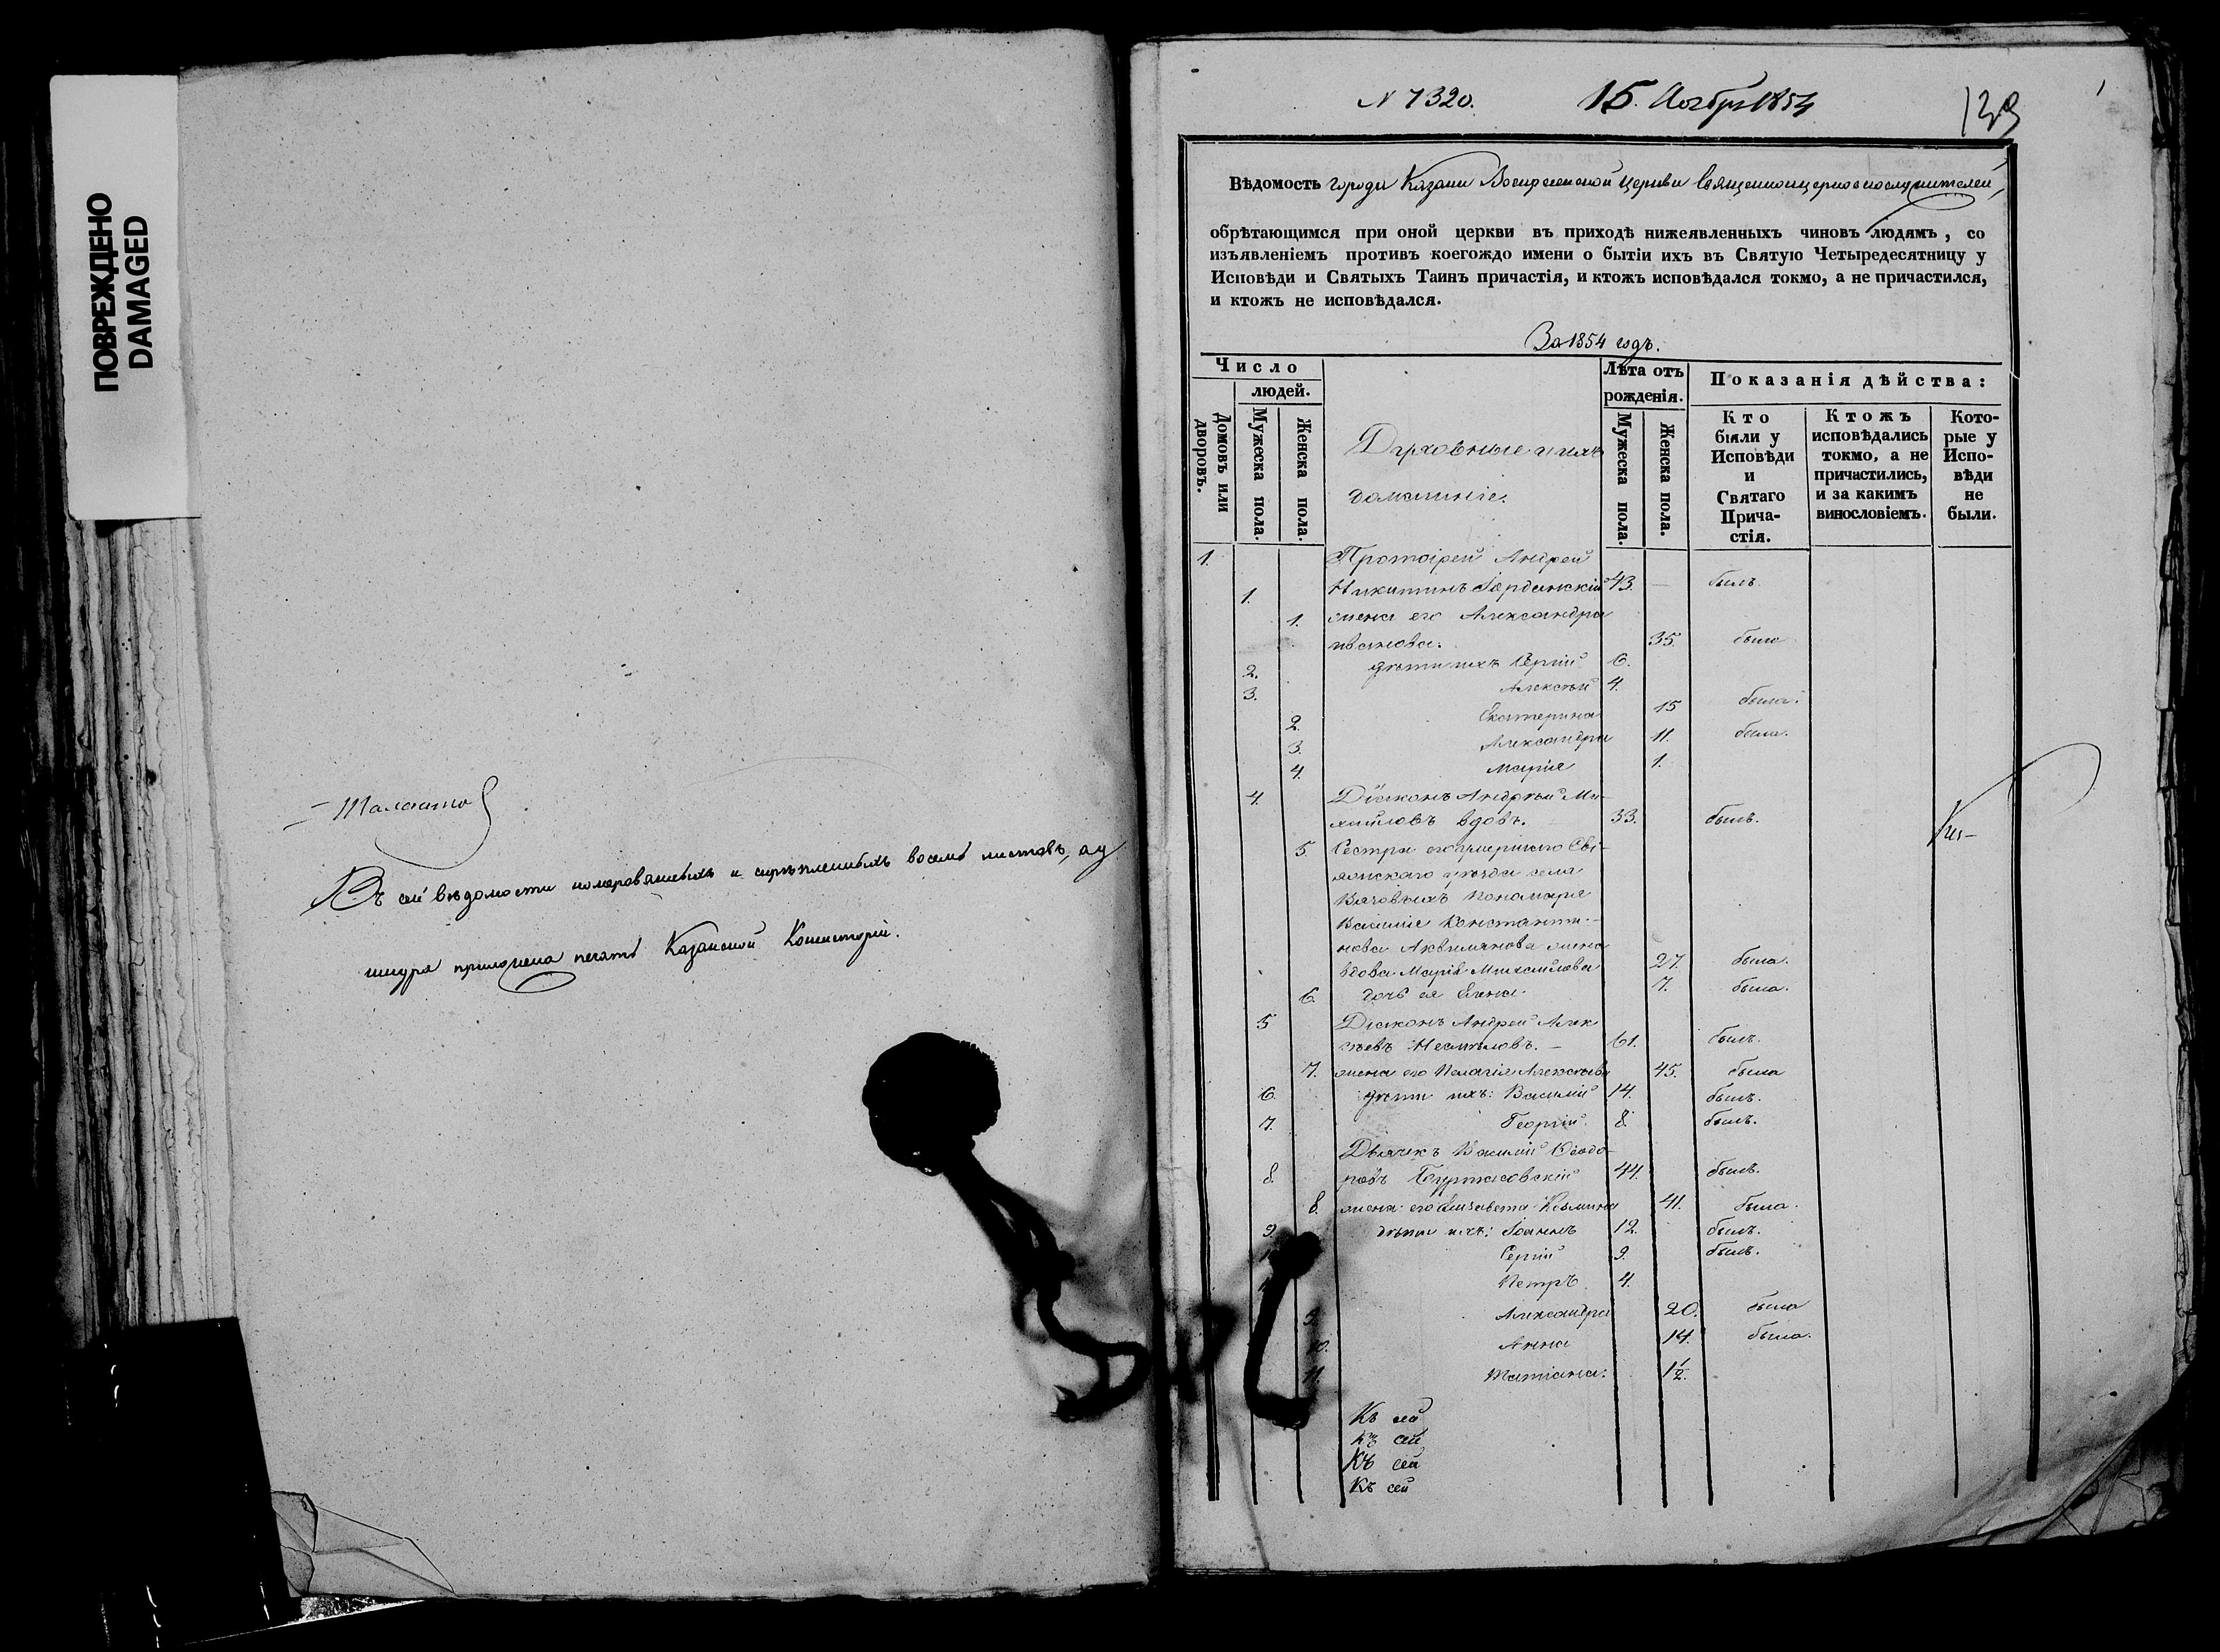 ПОВРЕЖДЕНО
DAMAGED
Въ сей вѣдомости номерованныхъ и скрѣпленныхъ восемь листовъ, а у
шнура приложена печать Казанской Консисторіи.
N 7320. 15. Ноября 1854
139
Вѣдомость города Казани Воскресенской церкви священноцерковнослужителей,
обрѣтающимся при оной церкви въ приходѣ нижеявленныхъ чиновъ людямъ, со
изъявленіемъ противъ коегождо имени о бытіи ихъ въ Святую Четыредесятницу у
Исповѣди и Святыхъ Таинъ причастія, и ктожъ исповѣдался токмо, а не причастился,
и ктожъ не исповѣдался.
За 1854 годъ.
Число
людей.
Домовъ или
дворовъ.
Мужеска пола.
Женска пола.
Духовные и ихъ
домашніе.
Лѣта отъ
рожденія.
Мужеска пола.
Женска пола.
Показанія дѣйства:
Кто
были у
Исповѣди
и
Святаго
Прича-
стія.
Ктожъ
исповѣдались
токмо, а не
причастились,
и за какимъ
винословіемъ.
Кото-
рые у
Испо-
вѣди
не
были.
1. Протоіерей Андрей
1. Никитинъ Іорданскій 43. — былъ.
1. жена его Александра
иванова. 35. была
2. дѣти ихъ Сергій 6.
3. Алексѣй 4.
2. Екатерина 15 была.
3. Александра 11. была.
4. Марія 1.
4. Діаконъ Андрей Ми-
хайловъ вдовъ. 33. былъ.
5. Сестра его умершаго Сві-
яжскаго уѣзда села
пономаря
Василія Константи-
нова жена
вдова Марія Михайлова 27. была.
6. дочь ея Елена. 7. была.
5 Діаконъ Андрей Алек
сѣевъ Несмѣловъ. — 61. былъ.
7. жена его Пелагія Алексѣева 45. была
6. дѣти ихъ: Василій 14. былъ.
7. Георгій. 8. былъ.
Дьячекъ Василій Ѳеодо-
8. ровъ 44. былъ.
8. жена его Елизавета Козмина 41. была.
9. дѣти ихъ: Іоаннъ 12. былъ.
Сергій 9. былъ.
Петръ 4.
9. Александра 20. была
10. Анна 14. была.
11. Татіана: 1½.
Къ сей
Къ сей
Къ сей
Къ сей